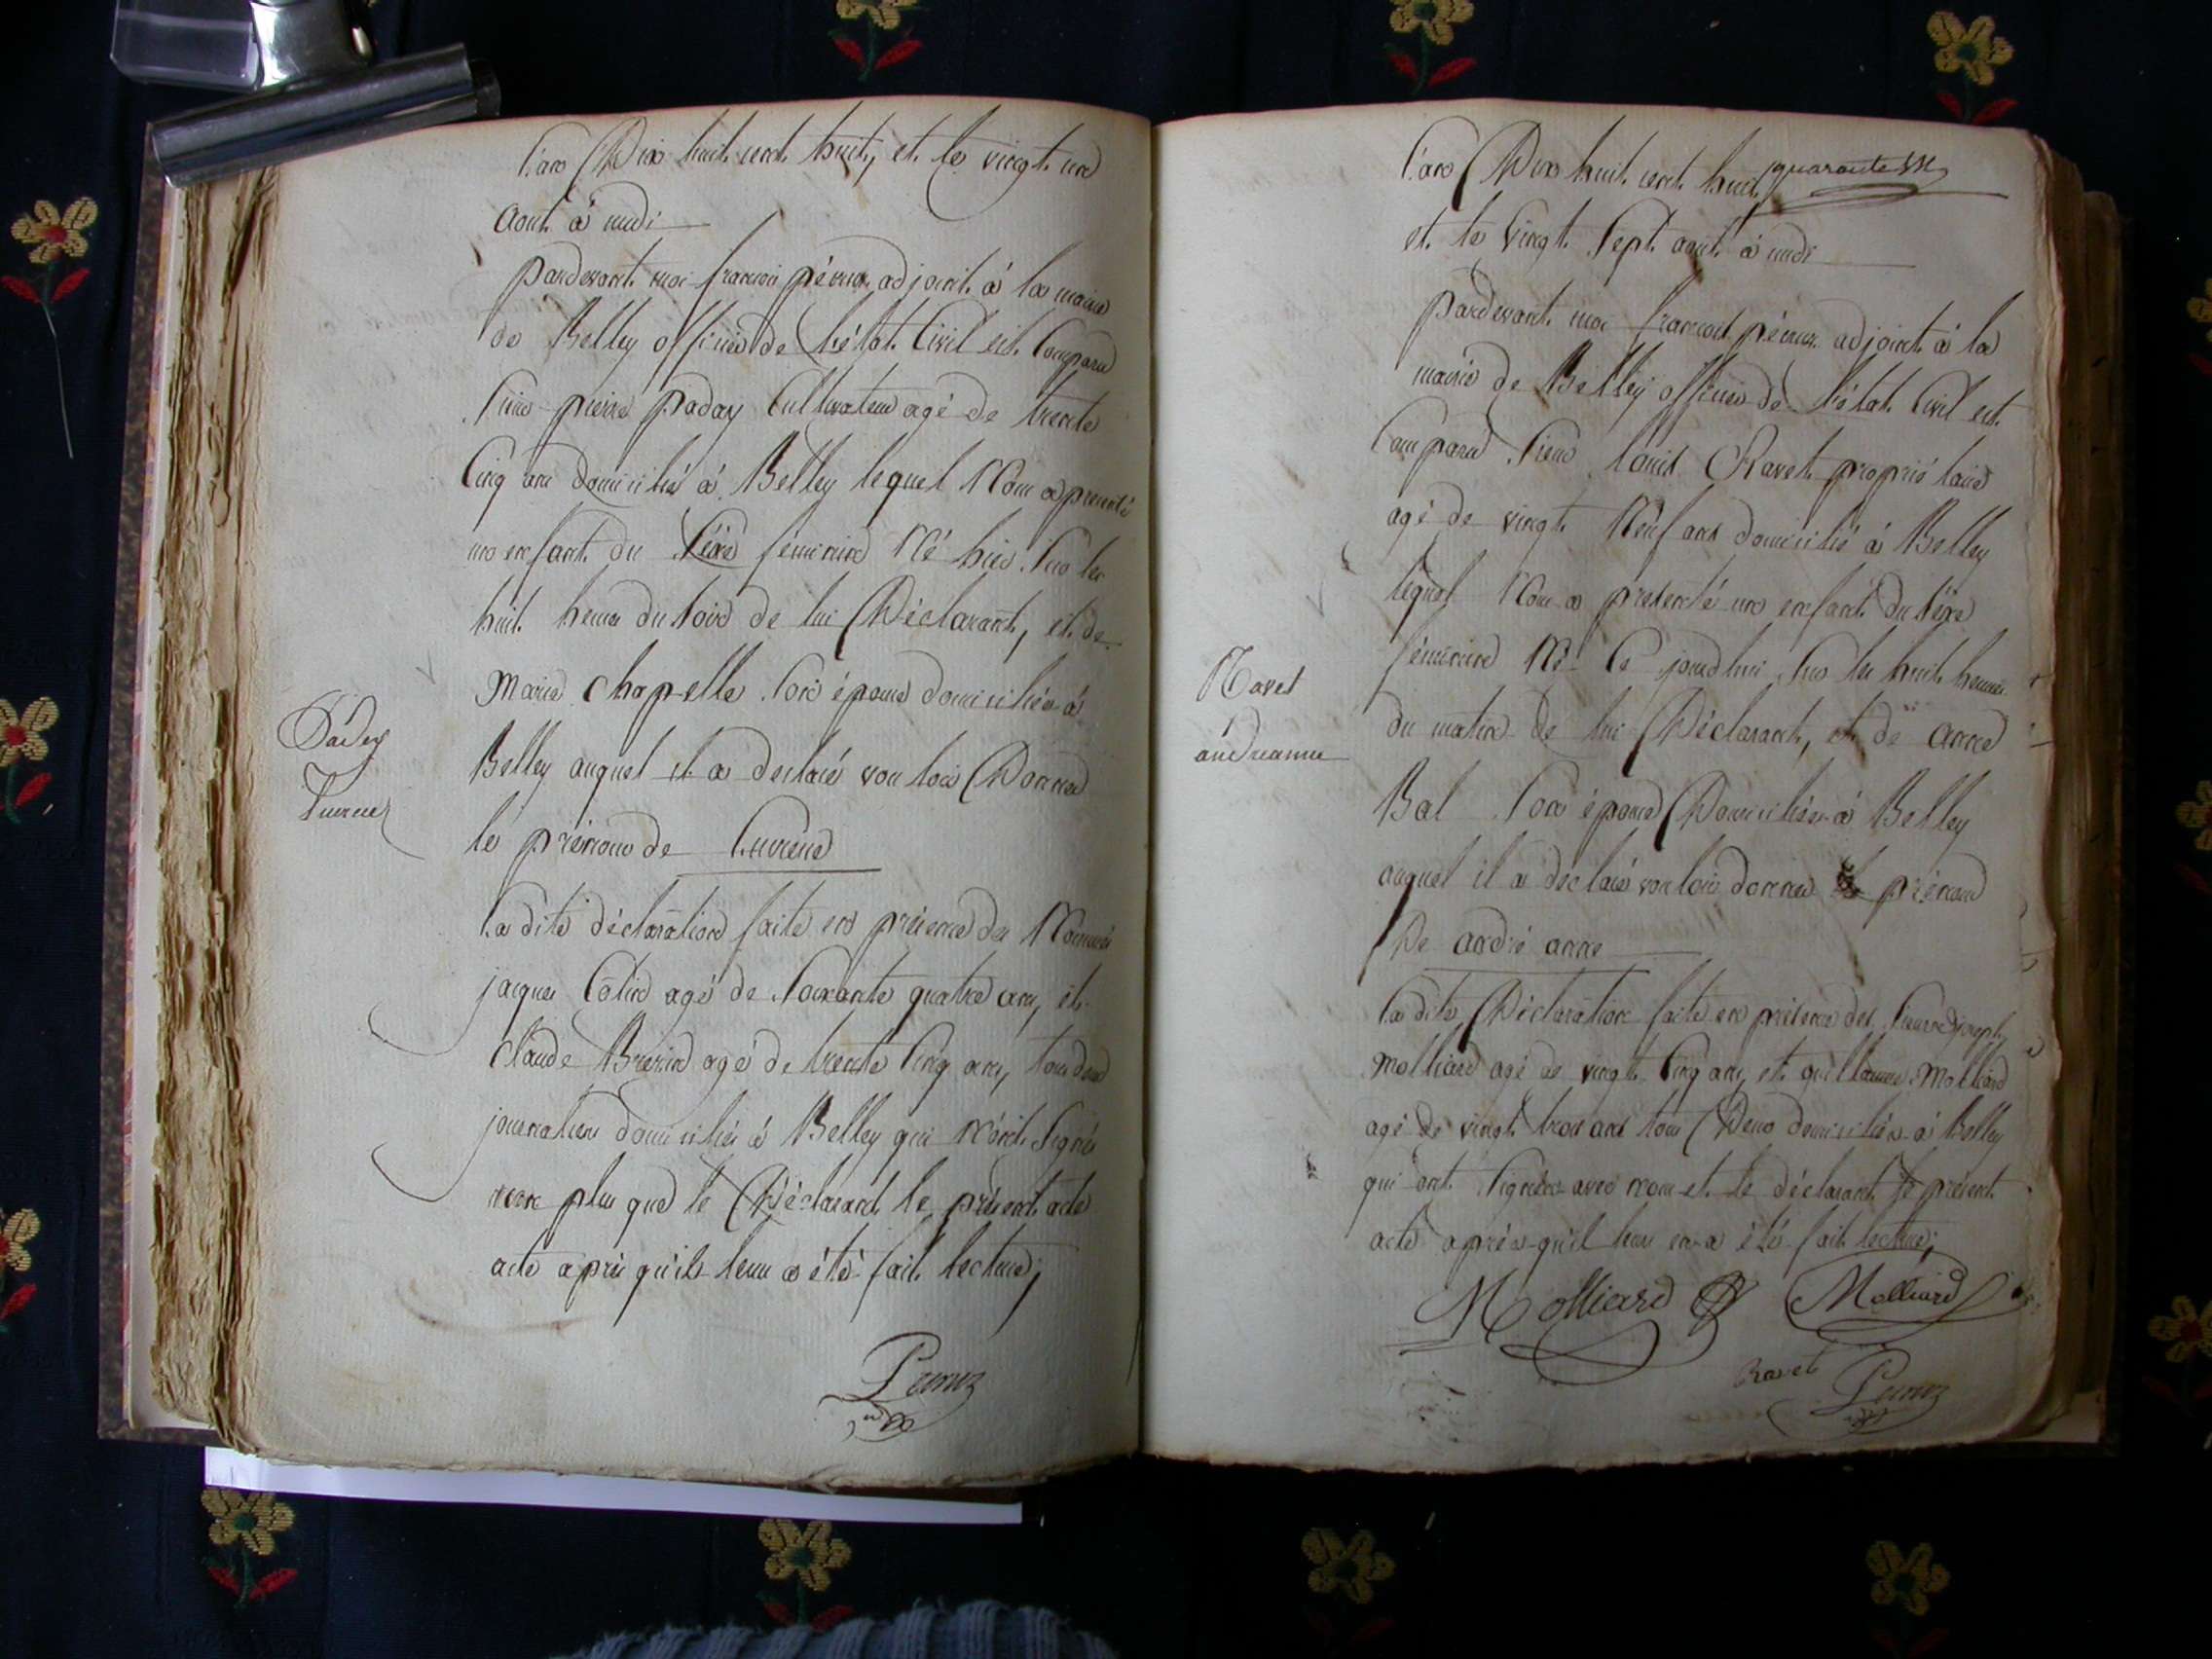 L'an Dix huit cent huit, et le vingt un
Aout à midi
Pardevant moi francois péroux adjoint à la mairie
de Belley officier de l'état Civil est Comparu
Sieur pierre paday Cultivateur agé de trente
Cinq ans domicilié à Belley lequel Nous a presenté
un enfant du Sexe féminin Né hier Sur les
huit heures du soir de lui Déclarant, et de
Marie Chapelle Son épouse domiciliés à
Belley auquel il a declaré vouloir Donner
le prénom de
La dite déclaration faite en présence des Nommés
jacques Cotin agé de Soixante quatre ans, et
Claude agé de trente Cinq ans, tous deux
journaliers domiciliés à Belley qui n'ont Signé
non plus que le Déclarant le présent acte
acte après qu'il leur a été fait lecture;
Paday
L'an Dix huit cent huit quarante six
et le vingt Sept aout à midi
Pardevant moi francois péroux adjoint à la
mairie de Belley officier de l'état Civil est
Comparu Sieur Louis Ravet propriétaire
agé de vingt Neuf ans domicilié à Belley
lequel Nous a presenté un enfant du Sexe
féminin Né Ce jourdhui Sur les huit heures
du matin de lui Déclarant, et de anne
Bal Son épouse Domiciliés à Belley
auquel il a déclaré vouloir donner le prénom
De andré anne
La dite Déclaration faite en présence des Sieurs joseph
Molliard agé de vingt Cinq ans, et guillaume Molliard
agé de vingt trois ans tous Deux domiciliés à Belley
qui ont Signé avec nous et le déclarant le présent
acte après qu'il leur en a été fait lecture;
Molliard Molliard
Ravet
Ravet